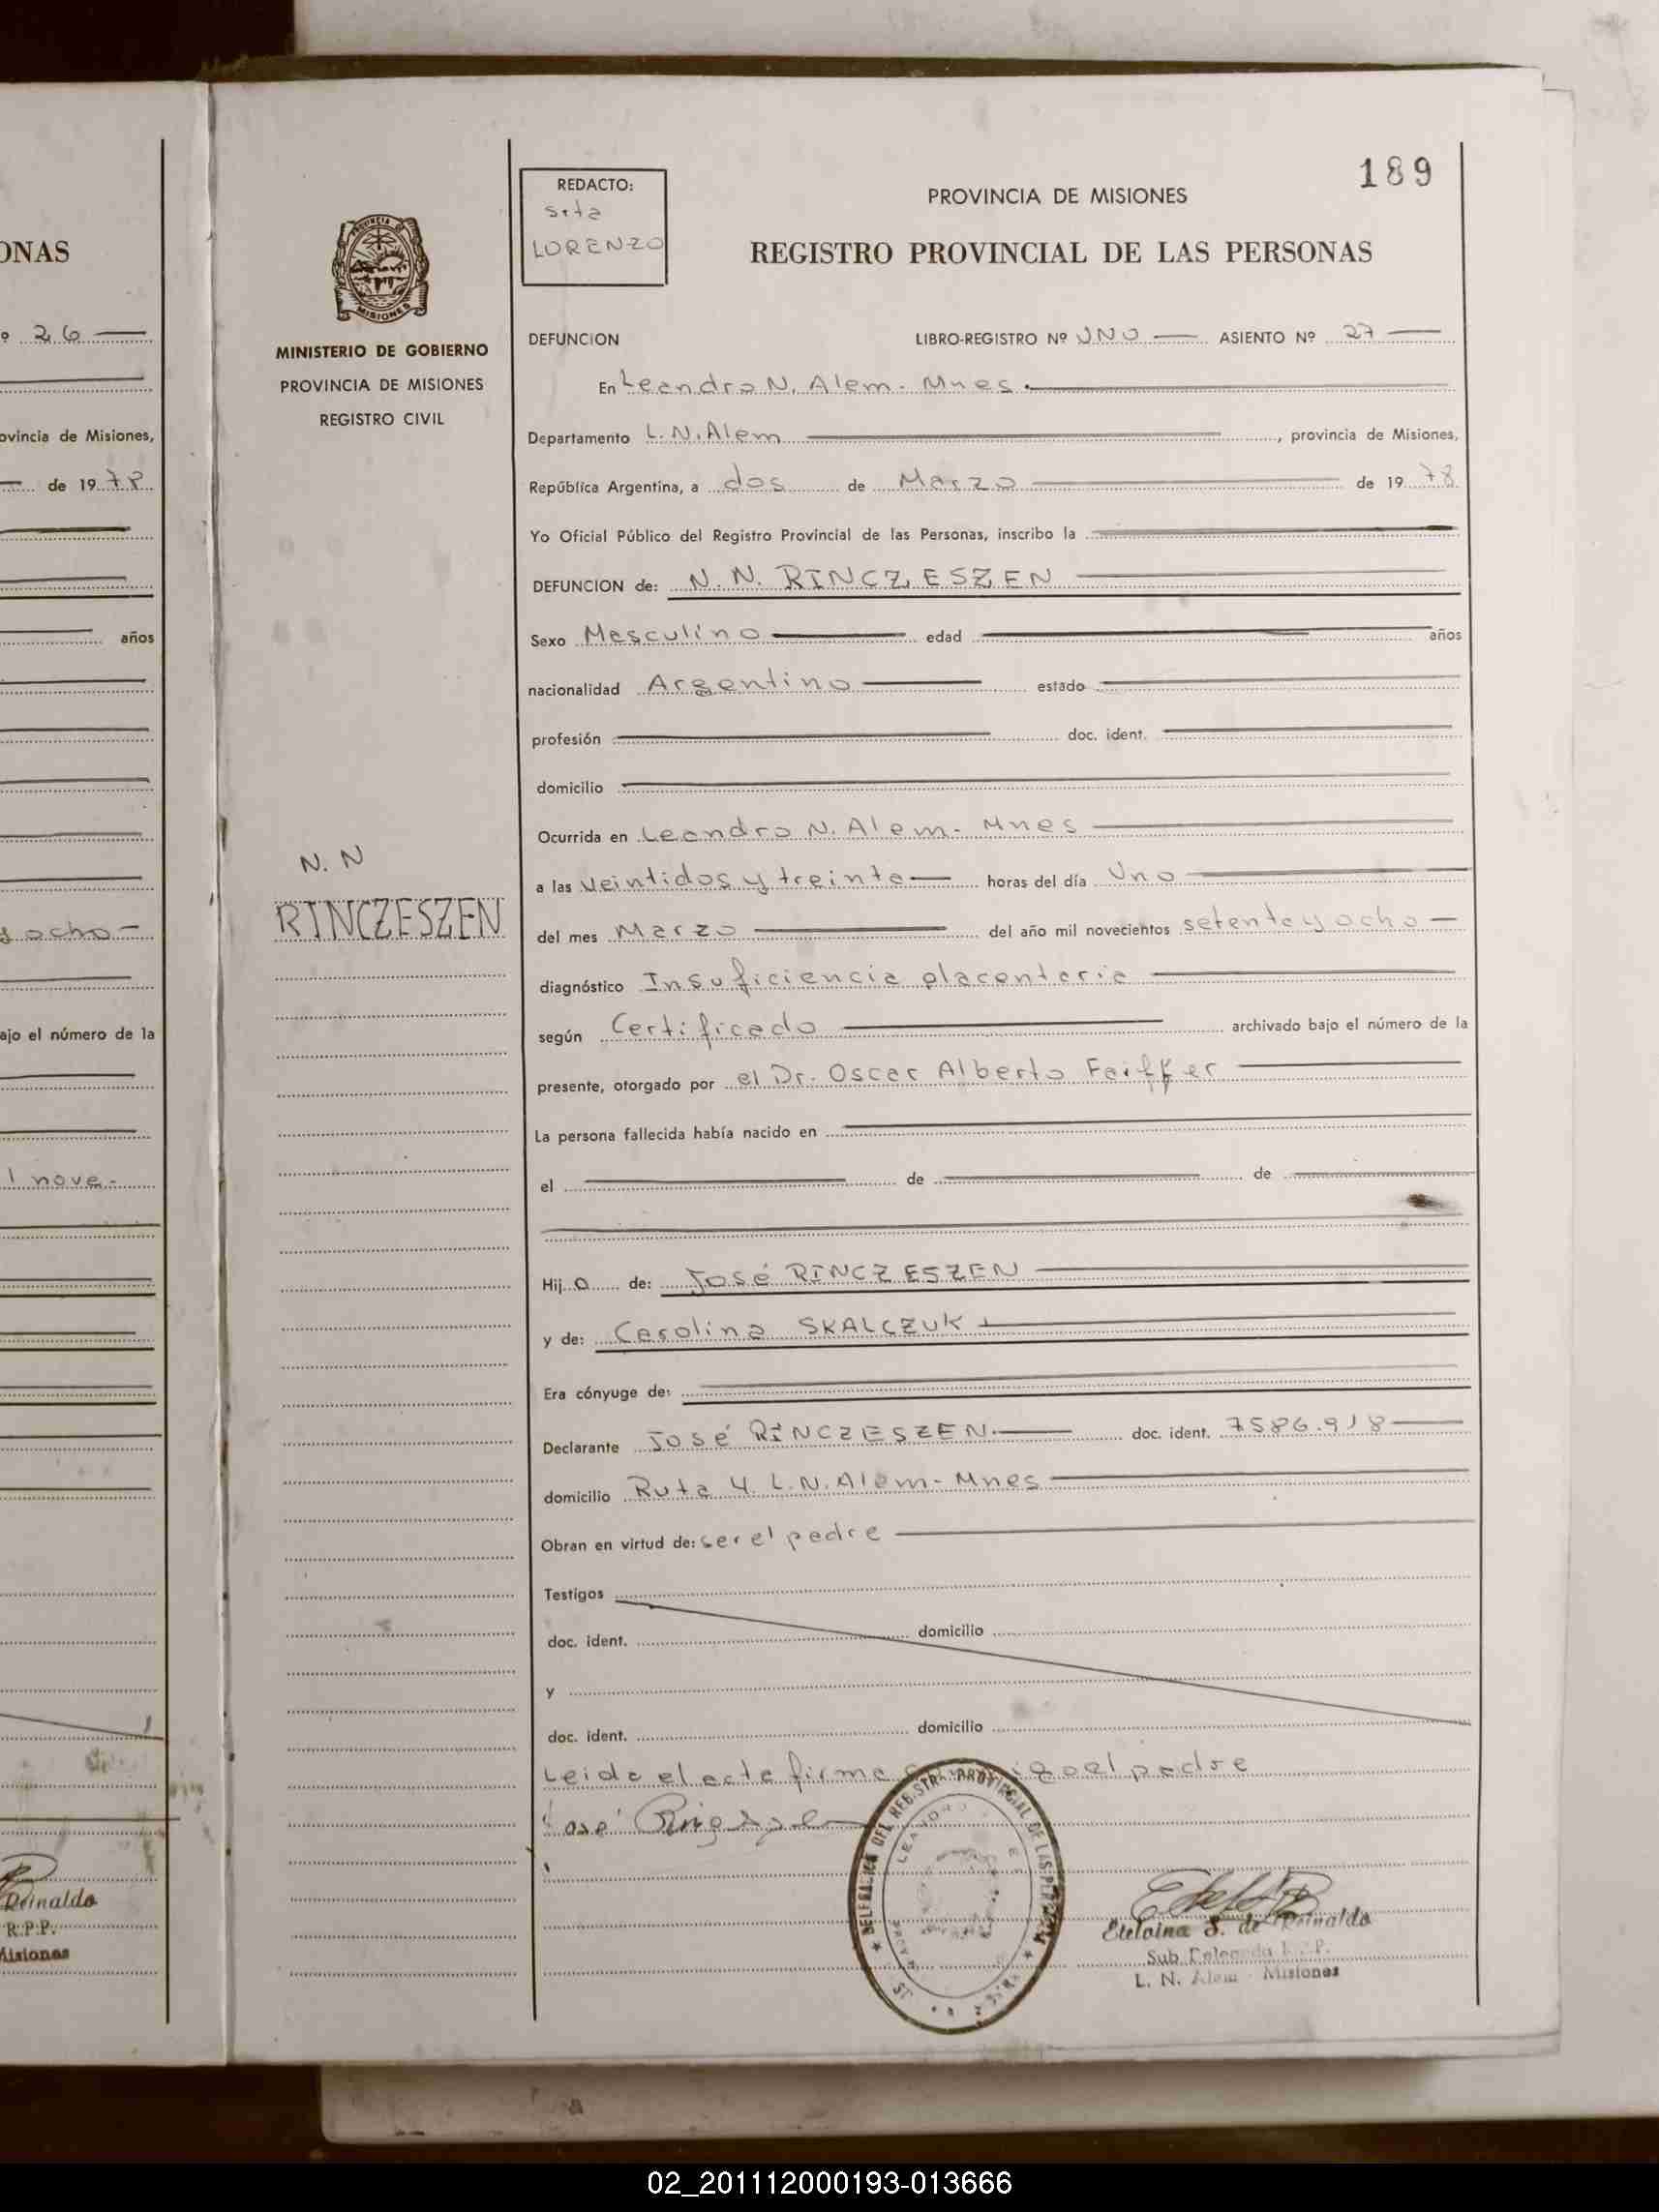 ONAS
º 26
ovincia de Misiones,
de 19 78
años
y ocho
ajo el número de la
l nove-
Reinaldo
R.P.P.
Misiones
MINISTERIO DE GOBIERNO
PROVINCIA DE MISIONES
REGISTRO CIVIL
N. N
RINCZESZEN
REDACTO:
Srta
LORENZO
189
PROVINCIA DE MISIONES
REGISTRO PROVINCIAL DE LAS PERSONAS
DEFUNCION LIBRO-REGISTRO Nº UNO ASIENTO Nº 27
En Leandro N. Alem - Mnes.
Departamento L. N. Alem , provincia de Misiones,
República Argentina, a dos de Marzo de 19 78
Yo Oficial Público del Registro Provincial de las Personas, inscribo la
DEFUNCION de: N. N. RINCZESZEN
Sexo Masculino edad años
nacionalidad Argentino estado
profesión doc. ident.
domicilio
Ocurrida en Leandro N. Alem - Mnes
a las veintidos y treinta horas del día Uno
del mes Marzo del año mil novecientos setenta y ocho
diagnóstico Insuficiencia placentaria
según Certificado archivado bajo el número de la
presente, otorgado por el Dr. Oscar Alberto Faiffer
La persona fallecida había nacido en
el de de
Hij o de: José RINCZESZEN
y de: Carolina SKALCZUK
Era cónyuge de:
Declarante José RINCZESZEN doc. ident. 7586.918
domicilio Ruta 4 L.N. Alem - Mnes
Obran en virtud de: ser el padre
Testigos
doc. ident. domicilio
y
doc. ident. domicilio
Leida el acta firma el padre
José
DELEGACION DEL REGISTRO PROVINCIAL DE LAS PERSONAS
Etelvina S. de Reinaldo
Sub Delegada R.P.P.
L. N. Alem - Misiones
02_201112000193-013666